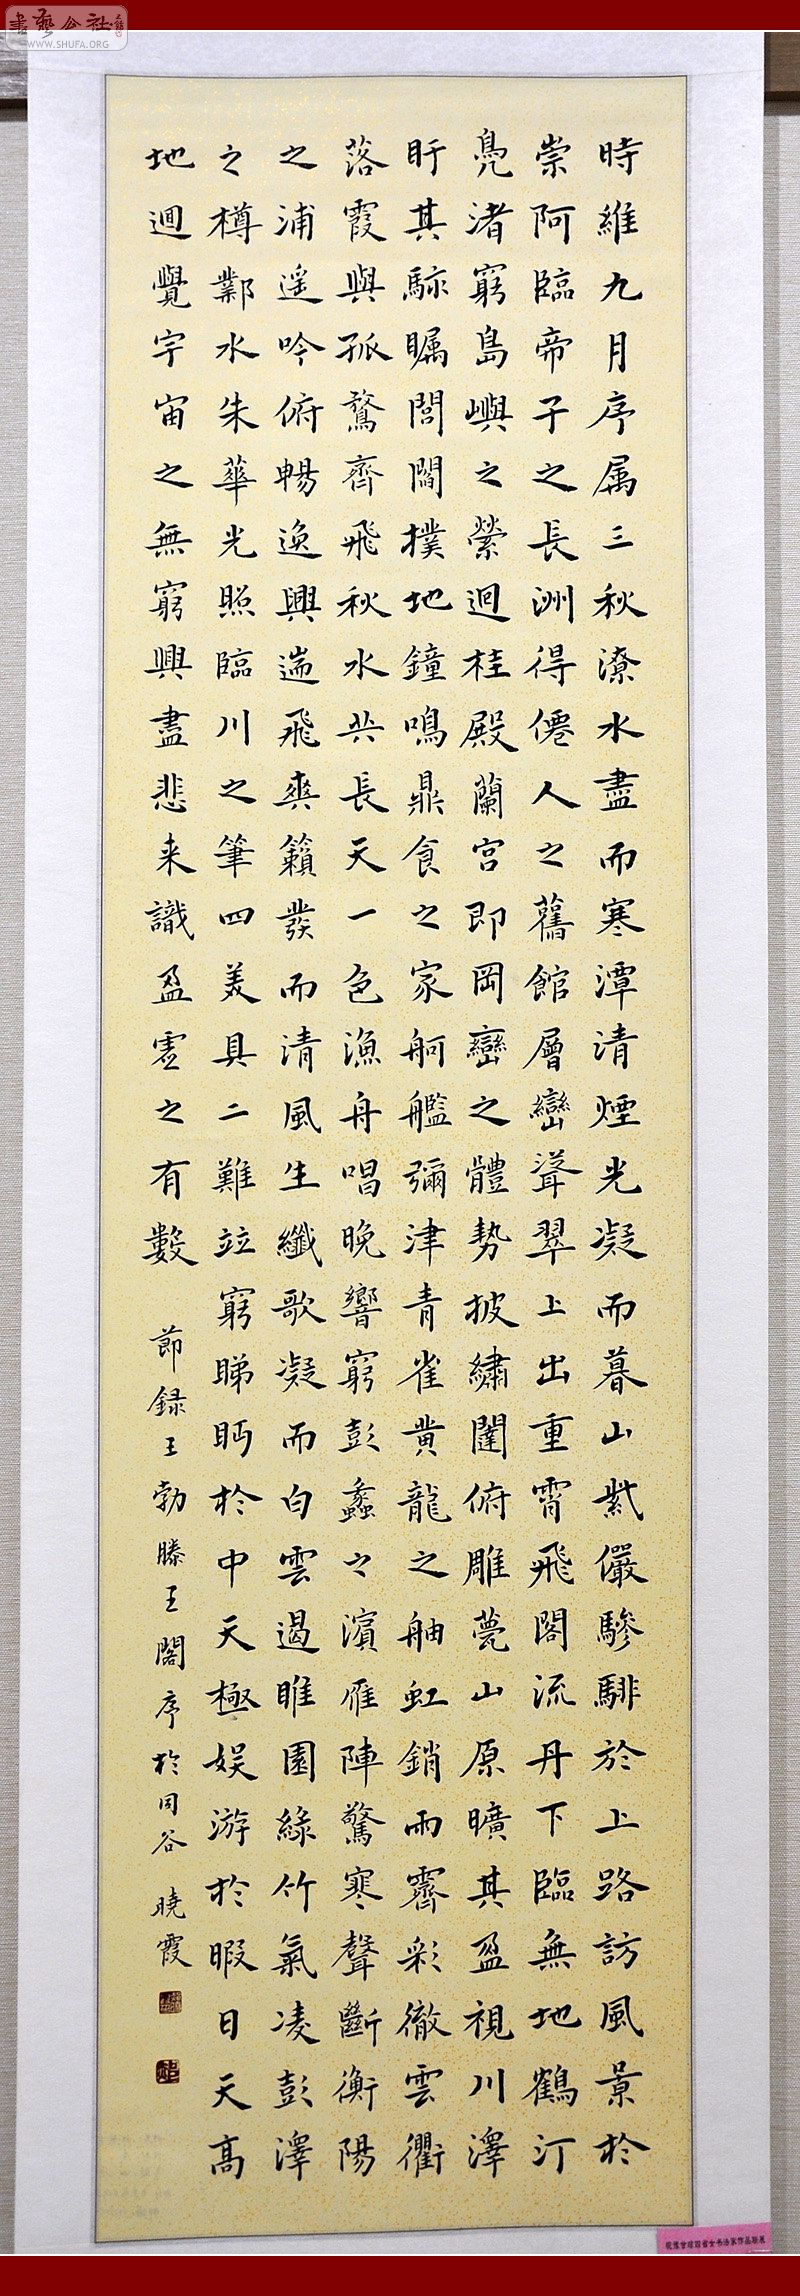 時維九月序属三秋潦水盡而寒潭清煙光凝而暮山紫儼驂騑於上路訪風景於
崇阿臨帝子之長洲得僊人之舊館層巒聳翠上出重霄飛閣流丹下臨無地鶴汀
鳧渚窮島嶼之縈迴桂殿蘭宮即岡巒之體勢披繡闥俯雕甍山原曠其盈視川澤
盱其駭矚閭閻撲地鐘鳴鼎食之家舸艦彌津青雀黄龍之舳虹銷雨霽彩徹雲衢
落霞與孤鶩齊飛秋水共長天一色漁舟唱晚響窮彭蠡之濱雁陣驚寒聲斷衡陽
之浦遥吟俯暢逸興遄飛爽籟發而清風生纖歌凝而白雲遏睢園綠竹氣凌彭澤
之樽鄴水朱華光照臨川之筆四美具二難竝窮睇眄於中天極娱游於暇日天高
地迥覺宇宙之無窮興盡悲来識盈虛之有數
節録王勃滕王閣序於同谷 曉霞
書藝公社
WWW.SHUFA.ORG